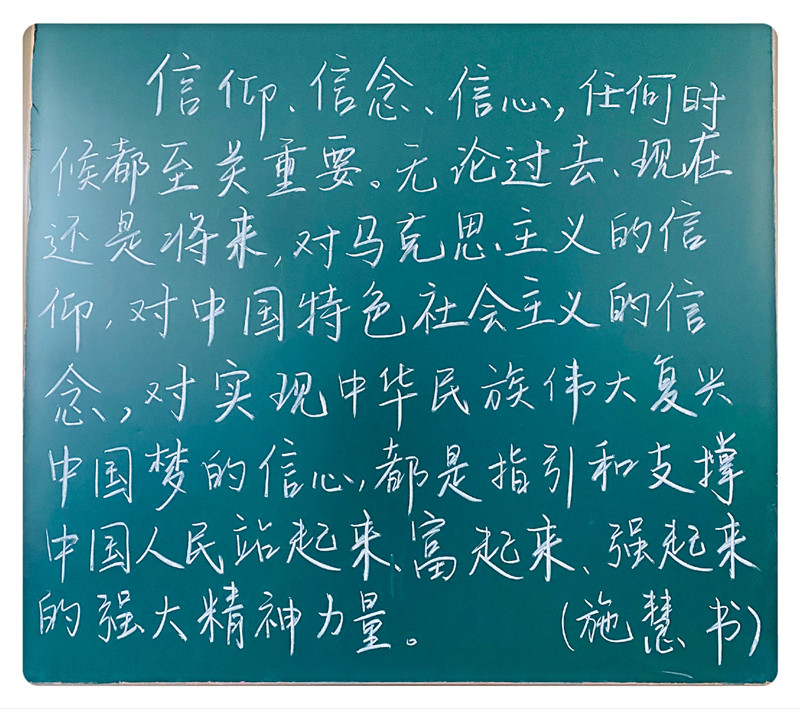 信仰、信念、信心,任何时
候都至关重要。无论过去、现在
还是将来,对马克思主义的信
仰,对中国特色社会主义的信
念,对实现中华民族伟大复兴
中国梦的信心,都是指引和支撑
中国人民站起来、富起来、强起来
的强大精神力量。 (施慧书)